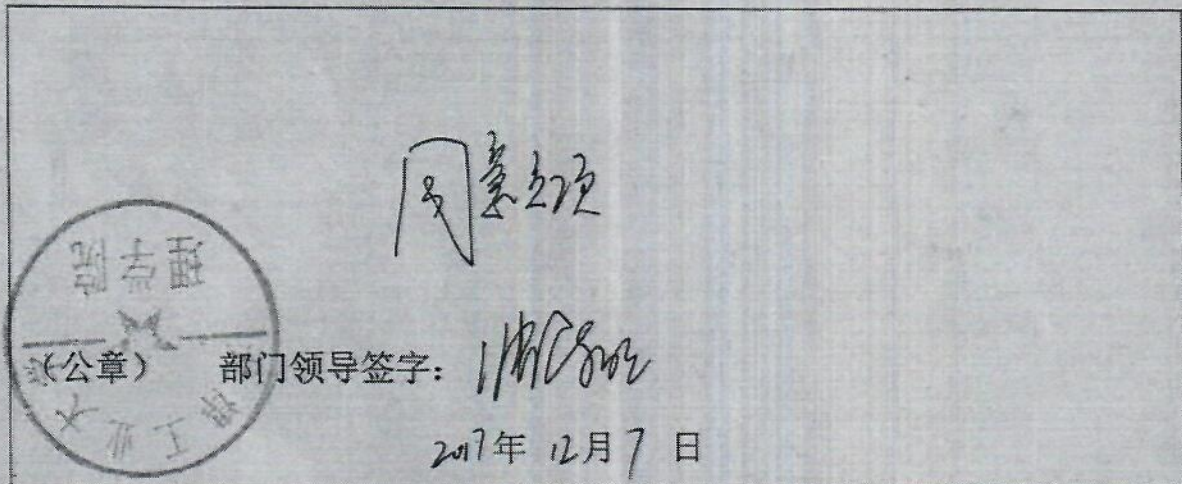 同意立项
理学院
工业大
(公章) 部门领导签字:
2017年 12月 7 日